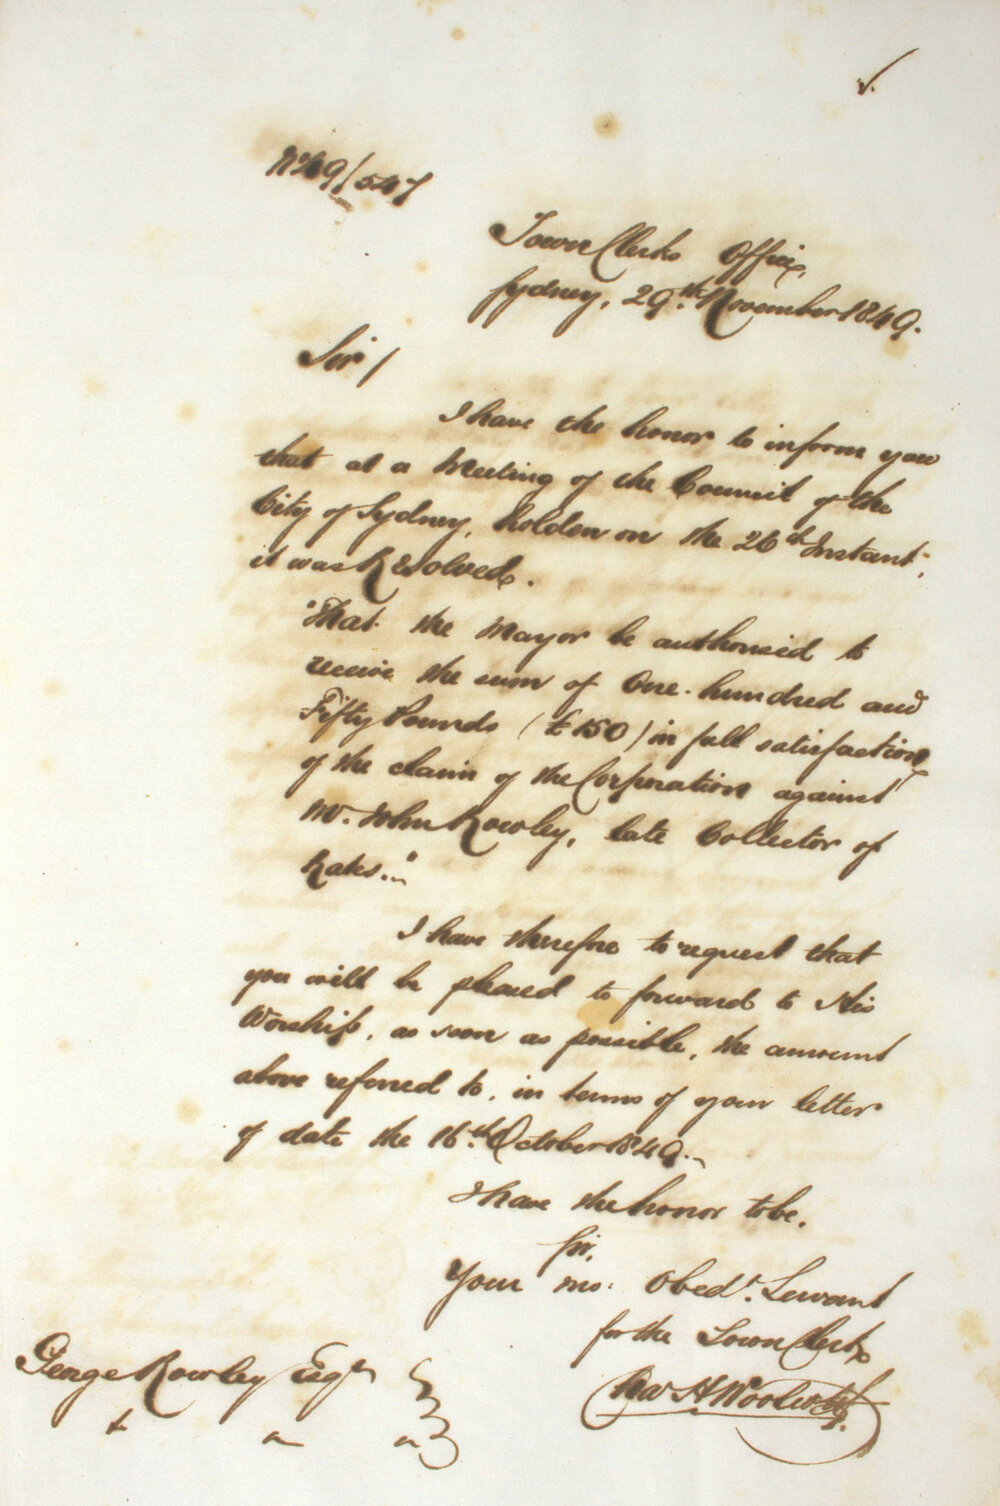 No 49/547
Town Clerks Office,
Sydney, 29th November 1849.
Sir /
I have the honor to inform you
that at a Meeting of the Council of the
City of Sydney, holden on the 26th Instant,
it was Resolved.
"That the Mayor be authorised to
receive the sum of One hundred and
Fifty Pounds (£150) in full satisfaction
of the claim of the Corporation against
Mr. John Rowley, late Collector of
Rates."
I have therefore to request that
you will be pleased to forward to His
Worship, as soon as possible, the amount
above referred to, in terms of your letter
of date the 16th October 1849.
I have the honor to be,
Sir,
Your mo: Obedt. Servant
for the Town Clerk
Chas H Woolcott
George Rowley Esqr